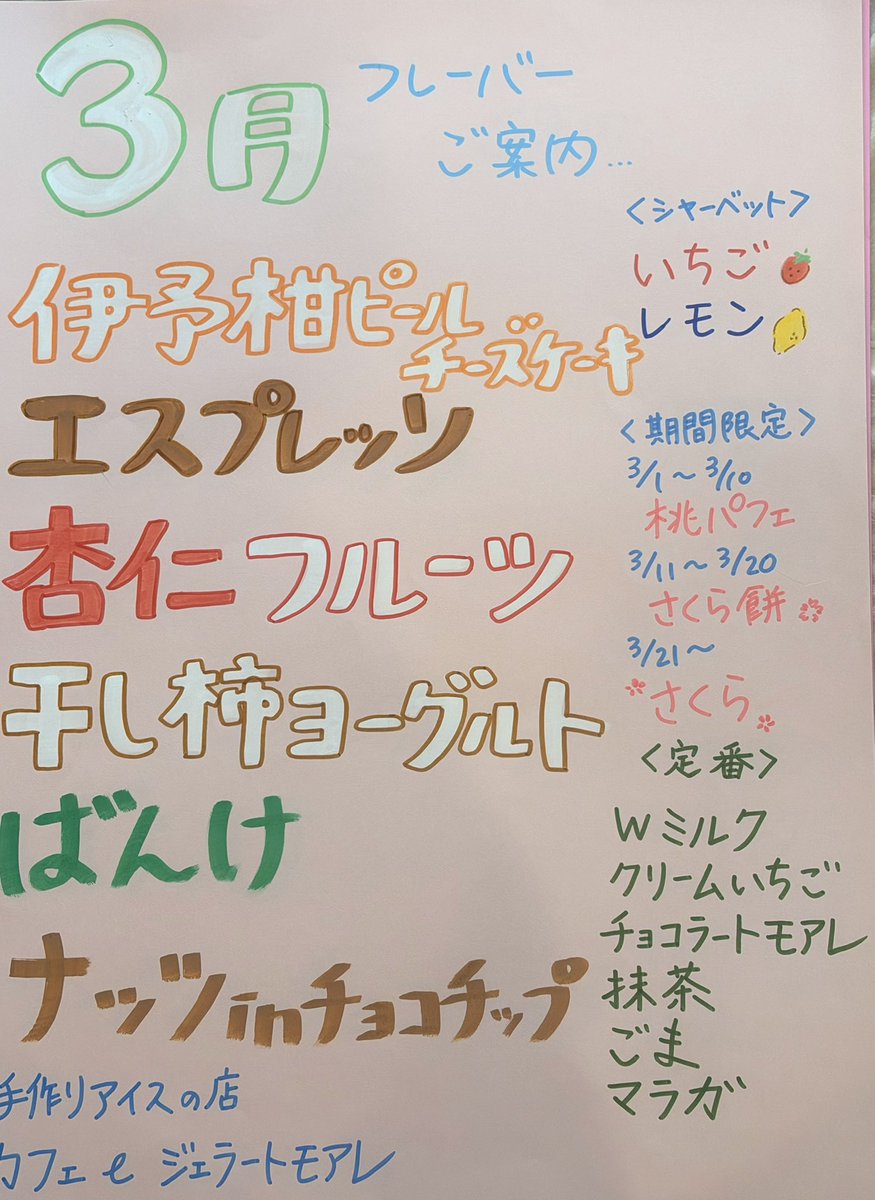 3月
フレーバー
ご案内...
伊予柑ピール
チーズケーキ
エスプレッソ
杏仁フルーツ
干し柿ヨーグルト
ばんけ
ナッツinチョコチップ
手作りアイスの店
カフェe ジェラートモアレ
<シャーベット>
いちご
レモン
<期間限定>
3/1~3/10
桃パフェ
3/11~3/20
さくら餅
3/21~
さくら
<定番>
Wミルク
クリームいちご
チョコラートモアレ
抹茶
ごま
マラガ